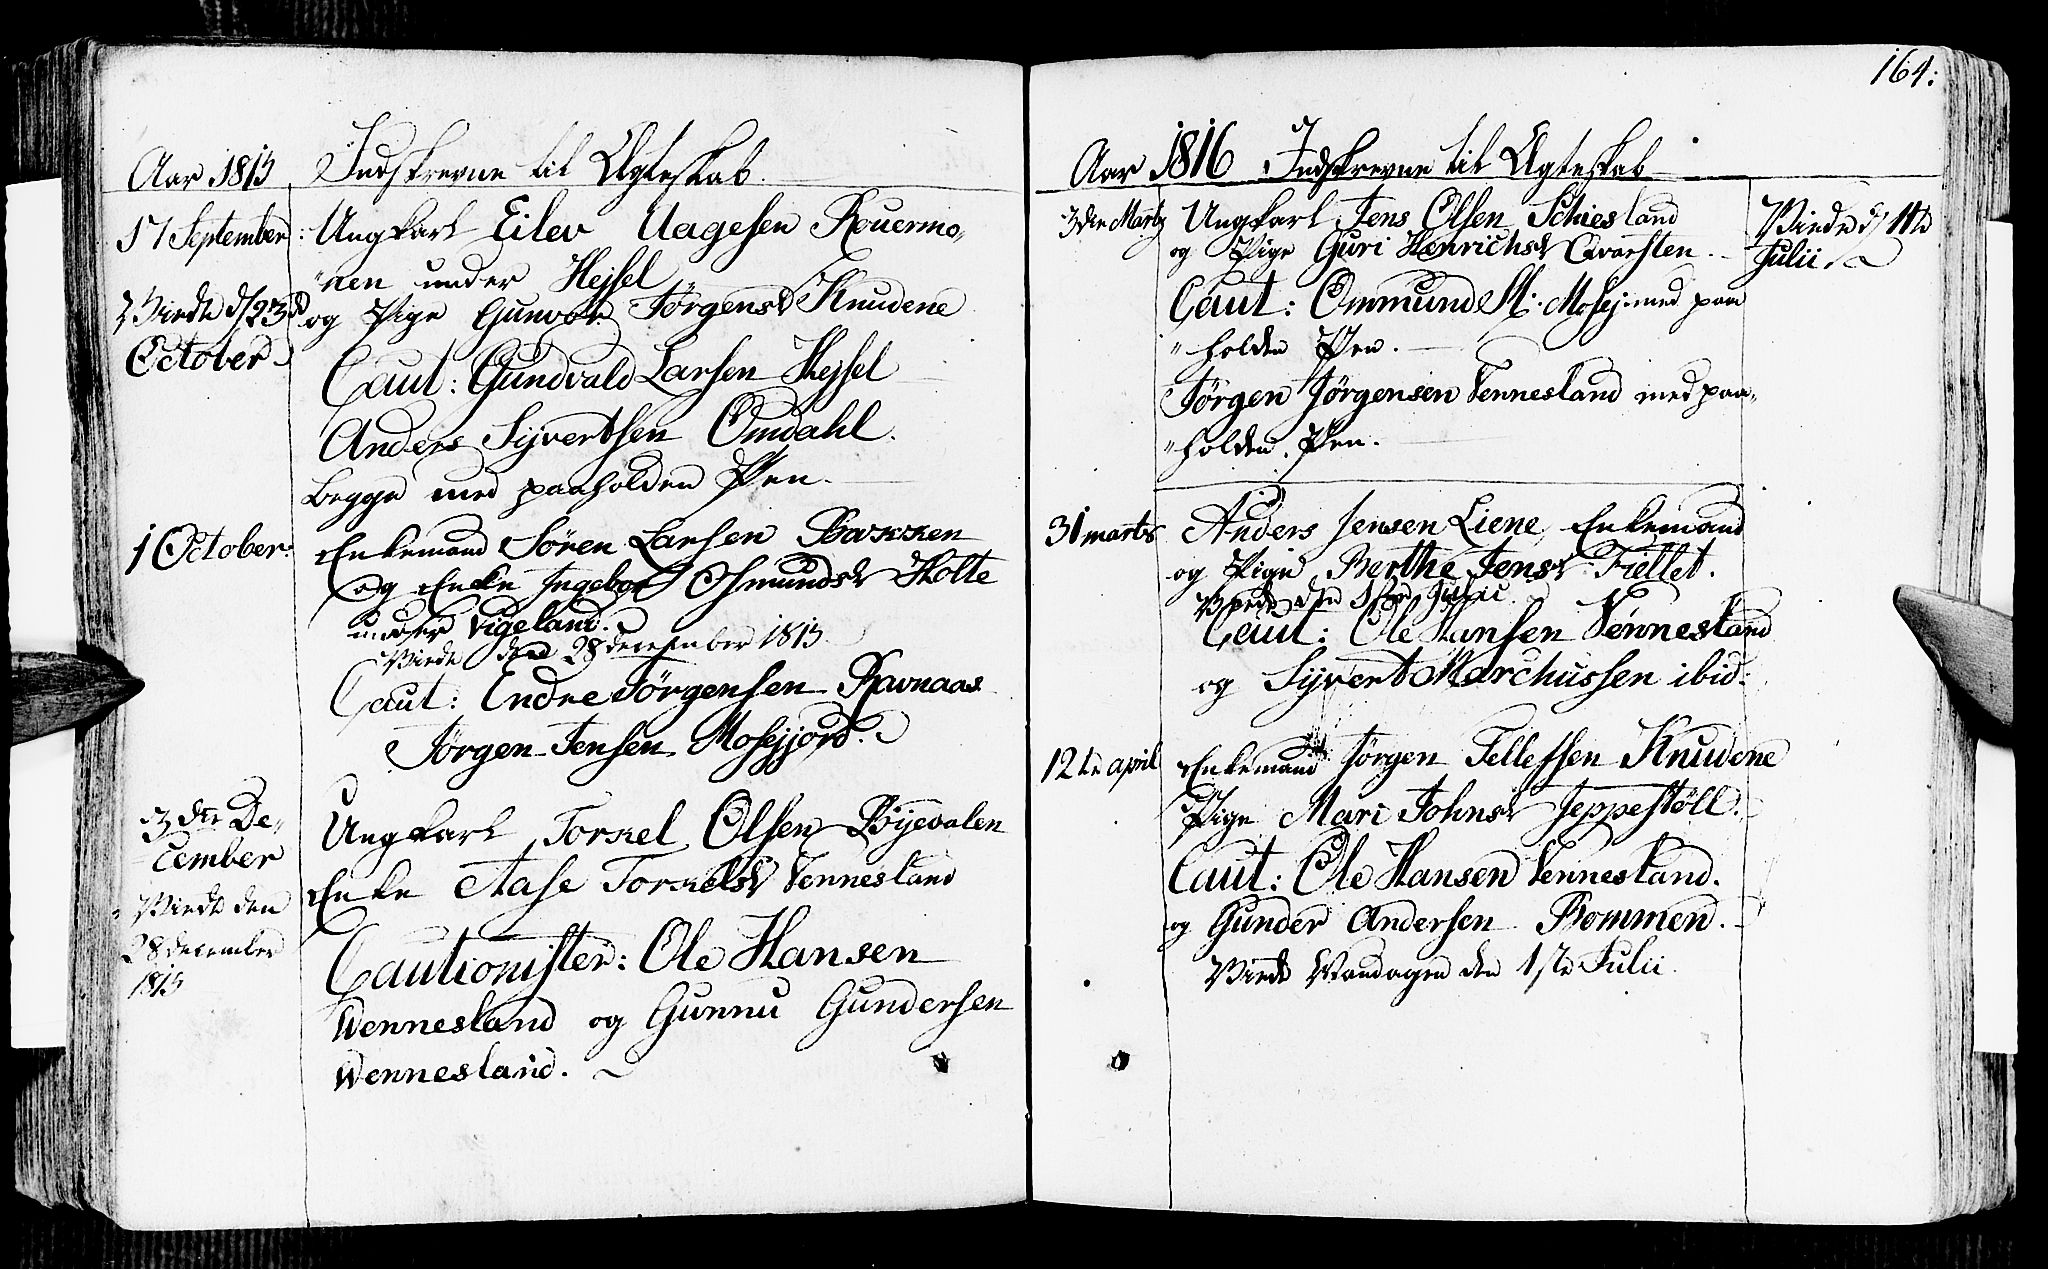 Aar 1815 Indskrevne til Ægteskab.
17 September: Ungkarl Eilev Aagesen Rouermo,,
"nen under Hejsel
Viede d/23d og Pige Gunvor Jørgensd Knudene
October Caut: Gundvald Larsen Hejsel
Anders Sijvertsen Omdahl.
begge med paaholden Pen.
1 October: Enkemand Søren Larsen Bakken
og Enke Ingebor Osmundsd Holte
under Vigeland.
Viede den 28 december 1815
Caut: Endre Jørgensen Ravnaas
Jørgen Jensen Mosejjord.
3die De,,
cember
Ungkarl Torkel Olsen Bijevalen
Enke Aase Torkelsd Vennesland
Viede den
28 december
1815
Cautionister: Ole Hansen
Wennesland og Gunnu Gundersen
Wennesland.
164:
Aar 1816 Indskrevne til Ægteskab
3die Martz Ungkarl Jens Olsen Schiesland
og Pige Guri Henrichsd Qvarsten.
Viede d/ 11te
Julii.
Caut: Ommund St: Mosej med paa
"holden Pen.
Jørgen Jørgensen Vennesland med paa,,
"holden Pen.
31 marts Anders Jensen Liene, Enkemand
og Pige Berthe Jensd Fiellet.
Viede den 1ste Julii
Caut: Ole Hansen Vennesland
og Sijvert Marchussen ibid:
12te april Enkemand Jørgen Tellefsen Knudene
Pige Mari Johnsd Jeppestøll.
Caut: Ole Hansen Vennesland.
og Gunder Andersen Bommen.
Viede Mandagen den 1ste Julii.